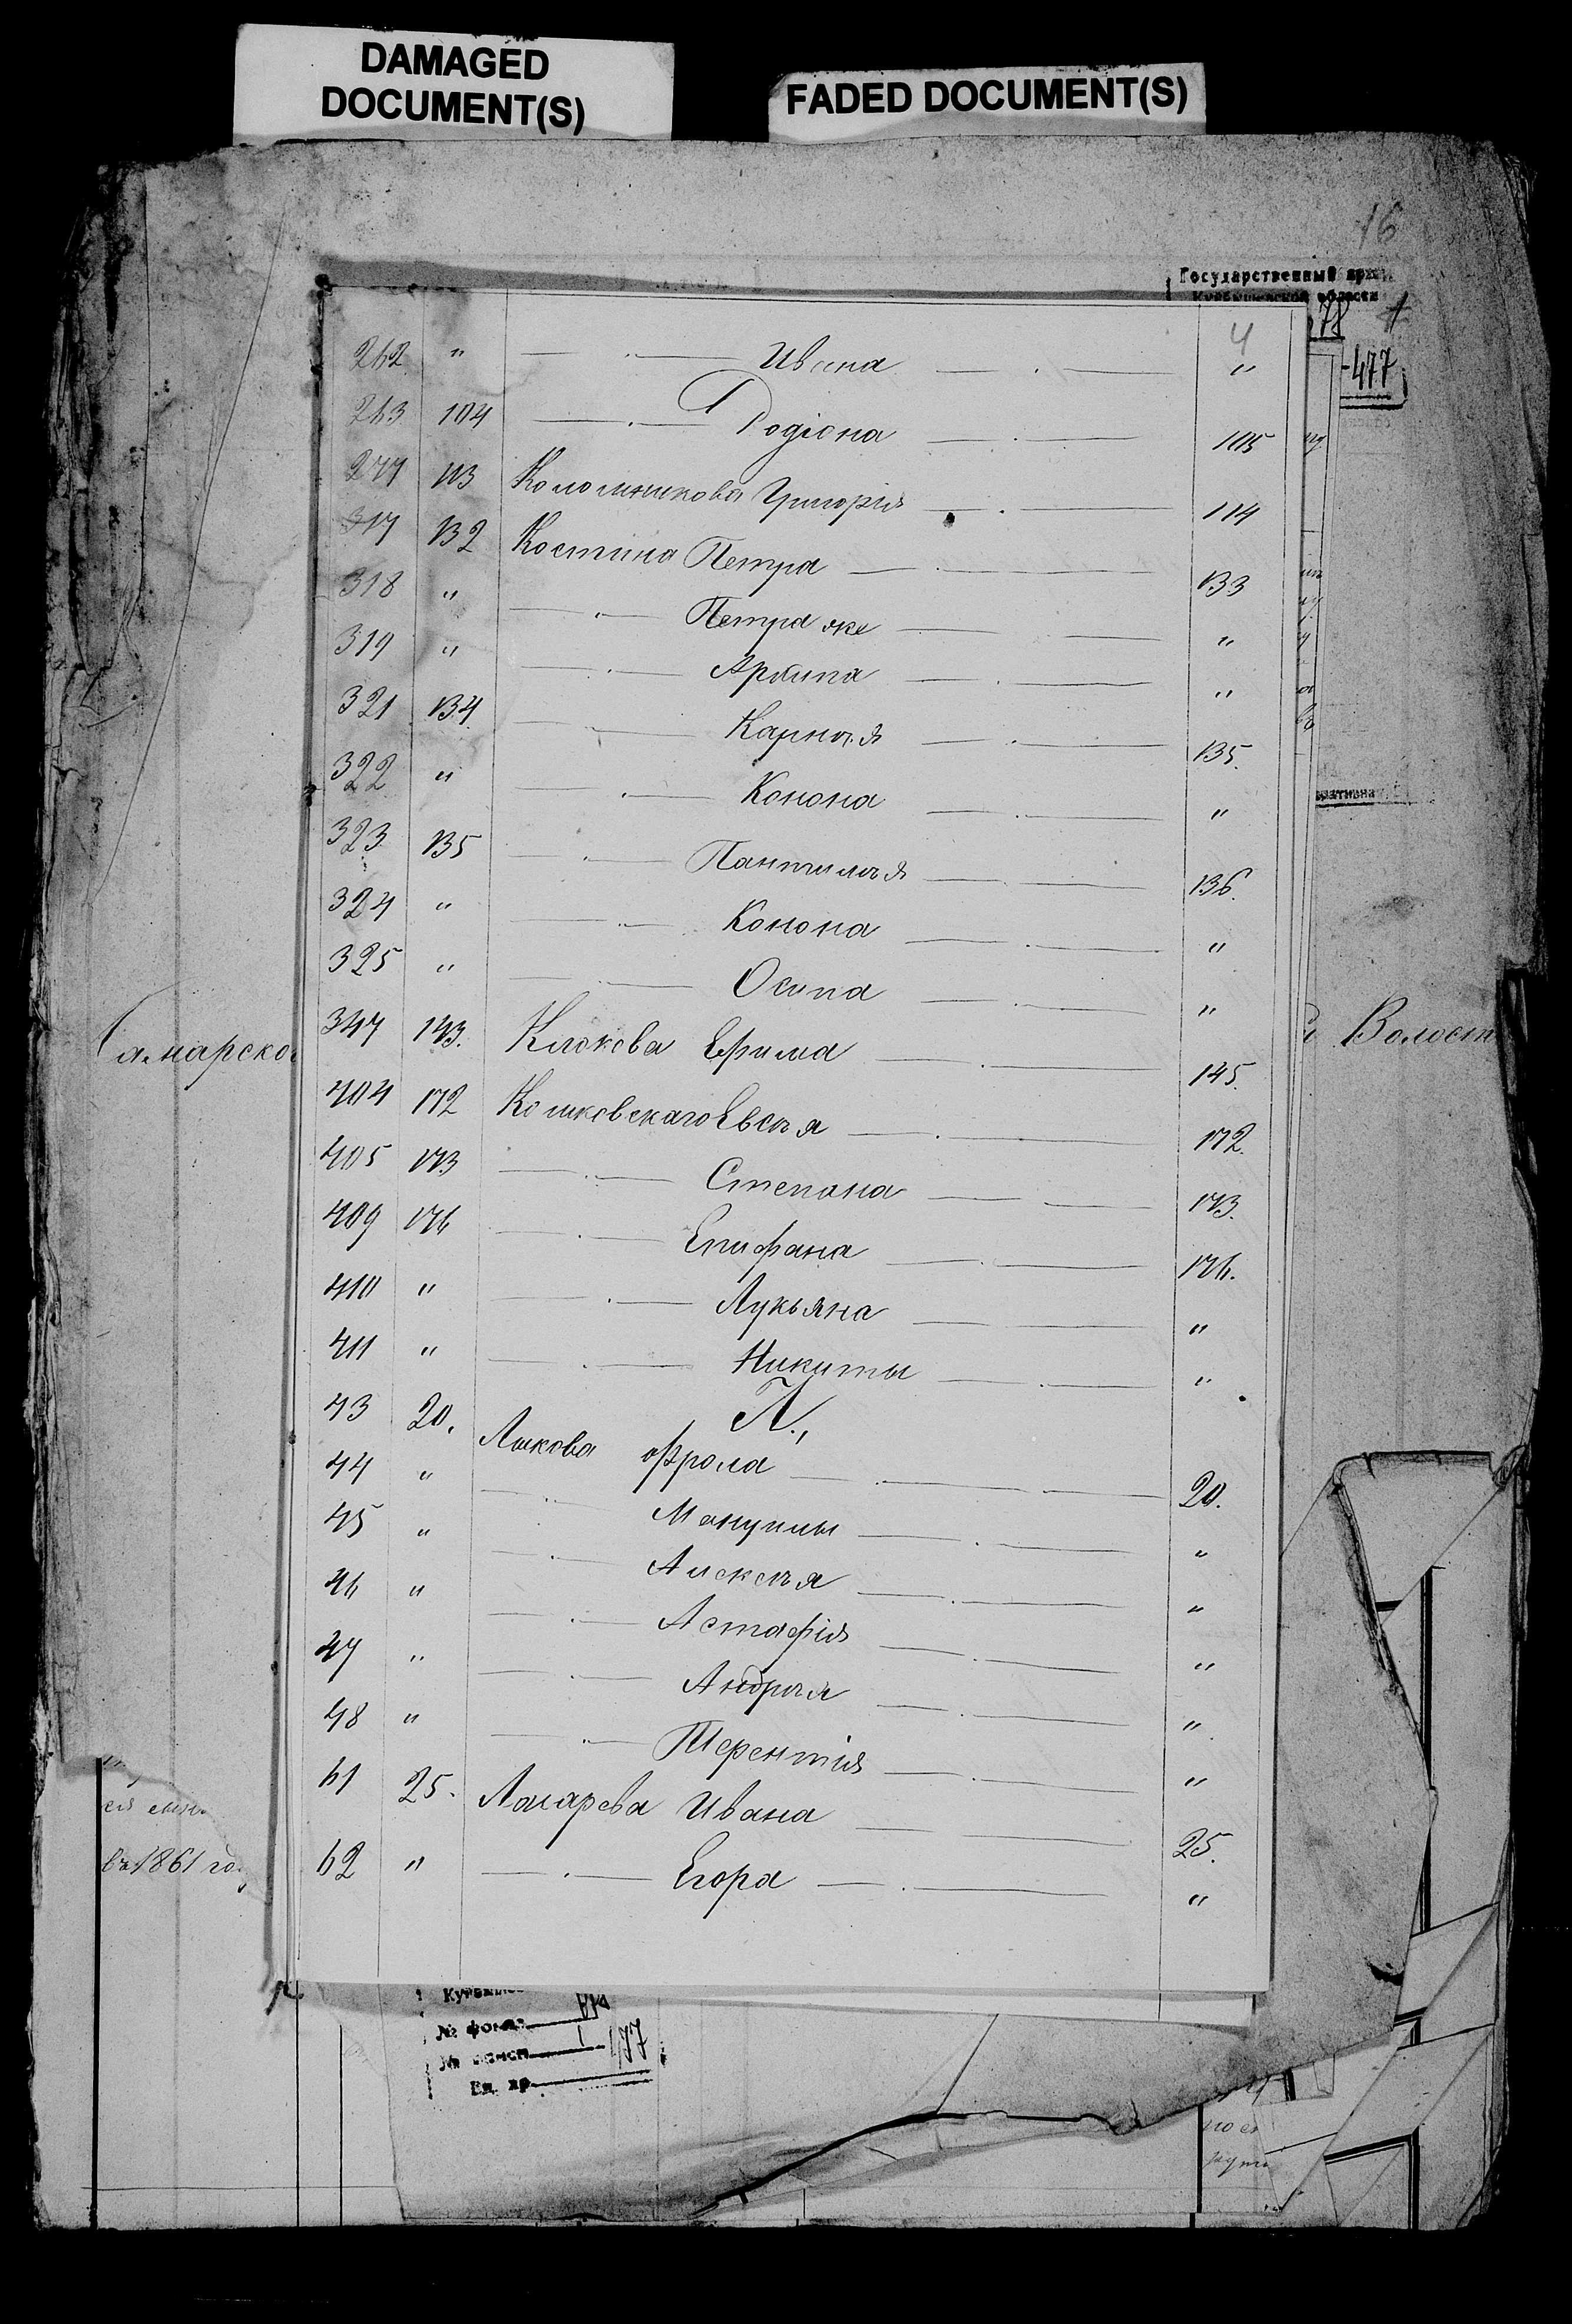 DAMAGED
DOCUMENT(S)
FADED DOCUMENT(S)
16
Государственный
области
78
477
4
262 " — Ивана — "
263 104 — Родіона — 105
277 113 Григорія — 114
317 132 Костина Петра — 133
318 " — Петра же — "
319 " — Архипа — "
321 134 — Карнѣя — 135.
322 " — Конона — "
323 135 — Пантилѣя — 136.
324 " — Конона — "
325 " — Осипа — "
347 143. Клокова Ефима — 145.
404 172 Кошковскаго Евсѣя — 172.
405 173 — Степана — 173.
409 176 — Епифана — 176.
410 " — Лукьяна — "
411 " — Никиты — "
Л.,
43 20. Лыкова Фрола — 20.
44 " — Мануилы — "
45 " — Алексѣя — "
46 " — Астафія — "
47 " — Андрѣя — "
48 " — Терентія — "
61 25. Лазарева Ивана — 25.
62 " — Егора — "
Самарско
Волост
въ 1861 го
№ фонда
477
Ед. хр.